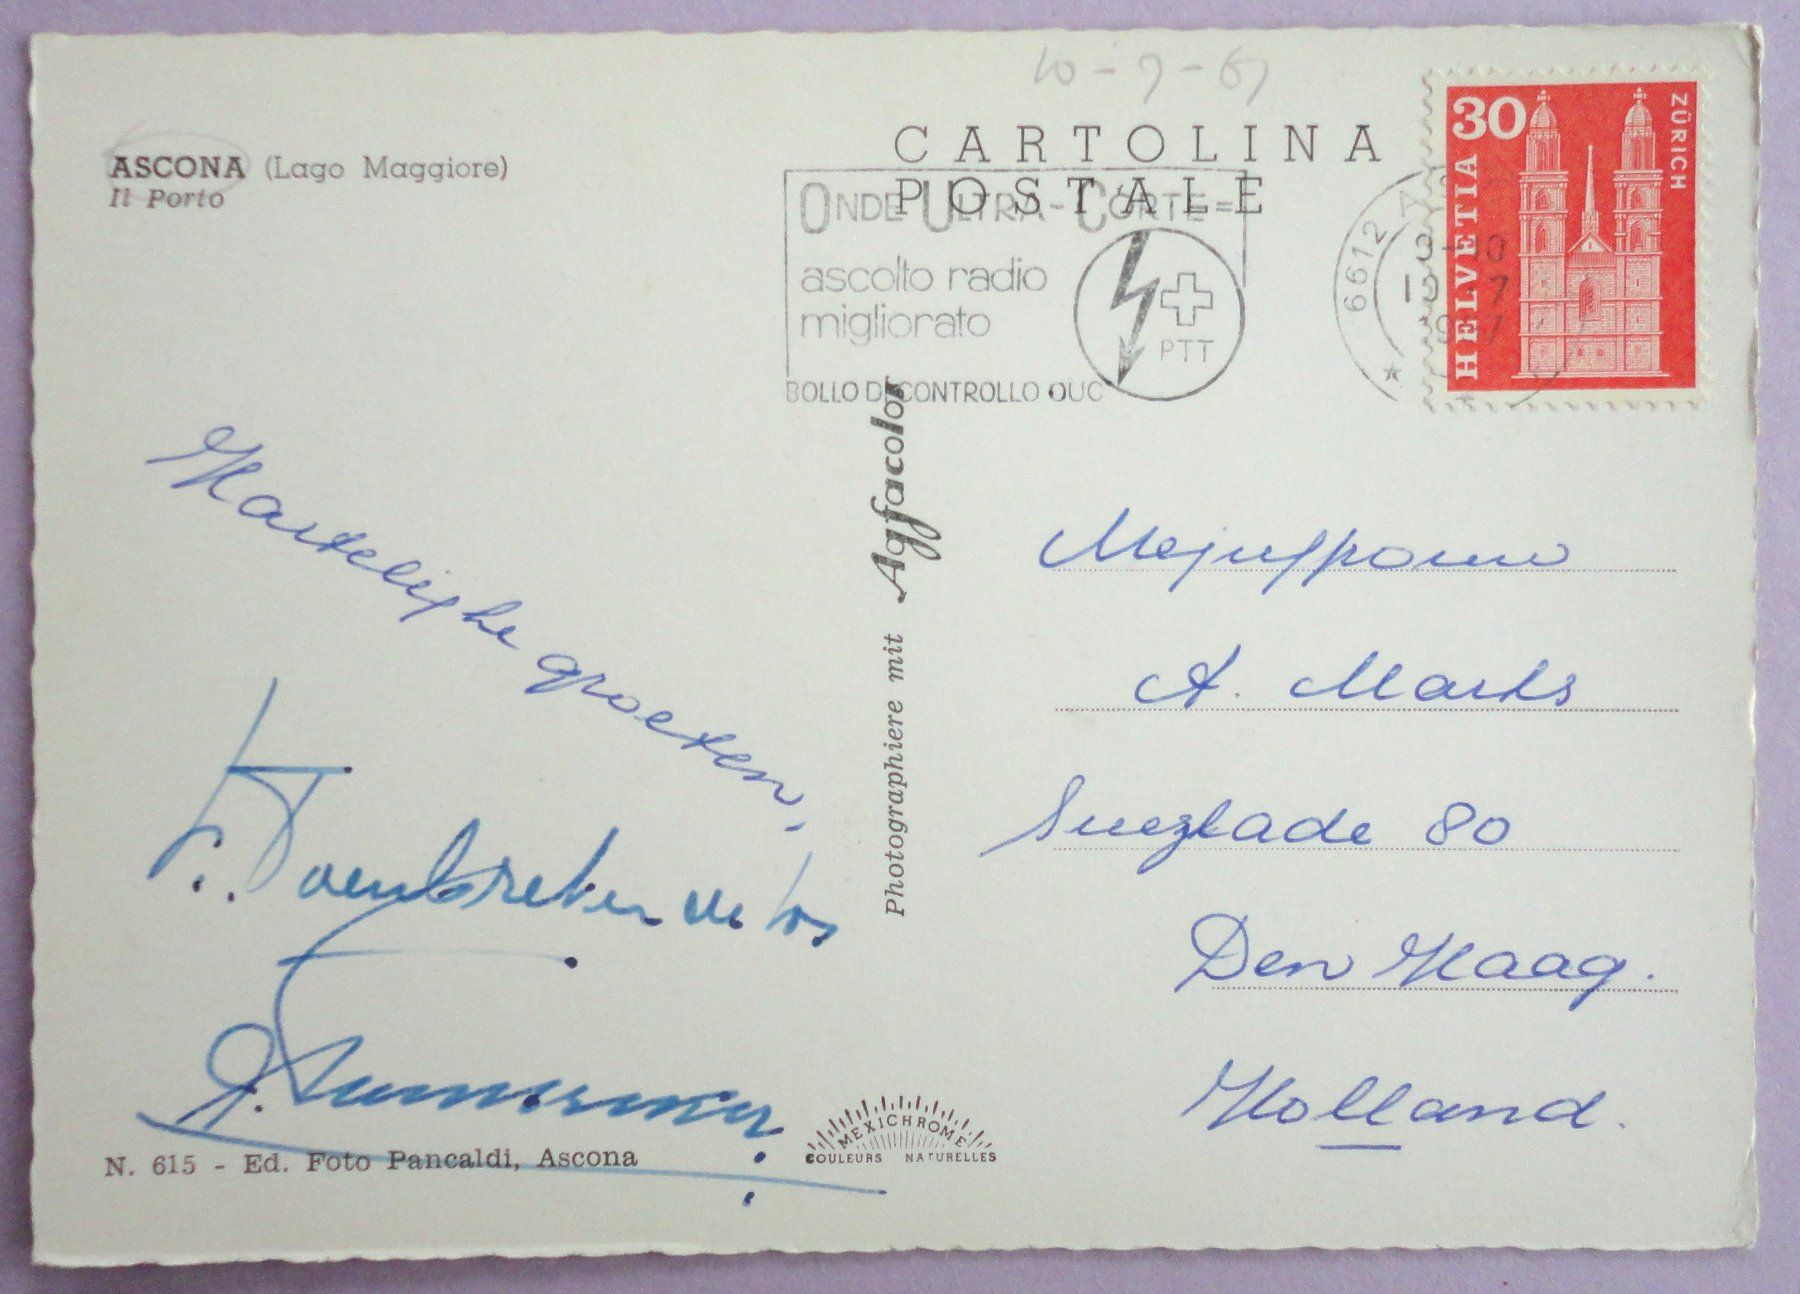 10-7-67
ASCONA (Lago Maggiore)
Il Porto
CARTOLINA
POSTALE
ONDE ULTRA-CORTE=
ascolto radio
migliorato
PTT
BOLLO DI CONTROLLO OUC
6612
30
ZÜRICH
HELVETIA
Hartelijke groeten,
Photographiere mit Agfacolor
Mejuffrouw
A. Marks
Suezkade 80
Den Haag.
Holland.
N. 615 - Ed. Foto Pancaldi, Ascona
MEXICHROME
COULEURS NATURELLES